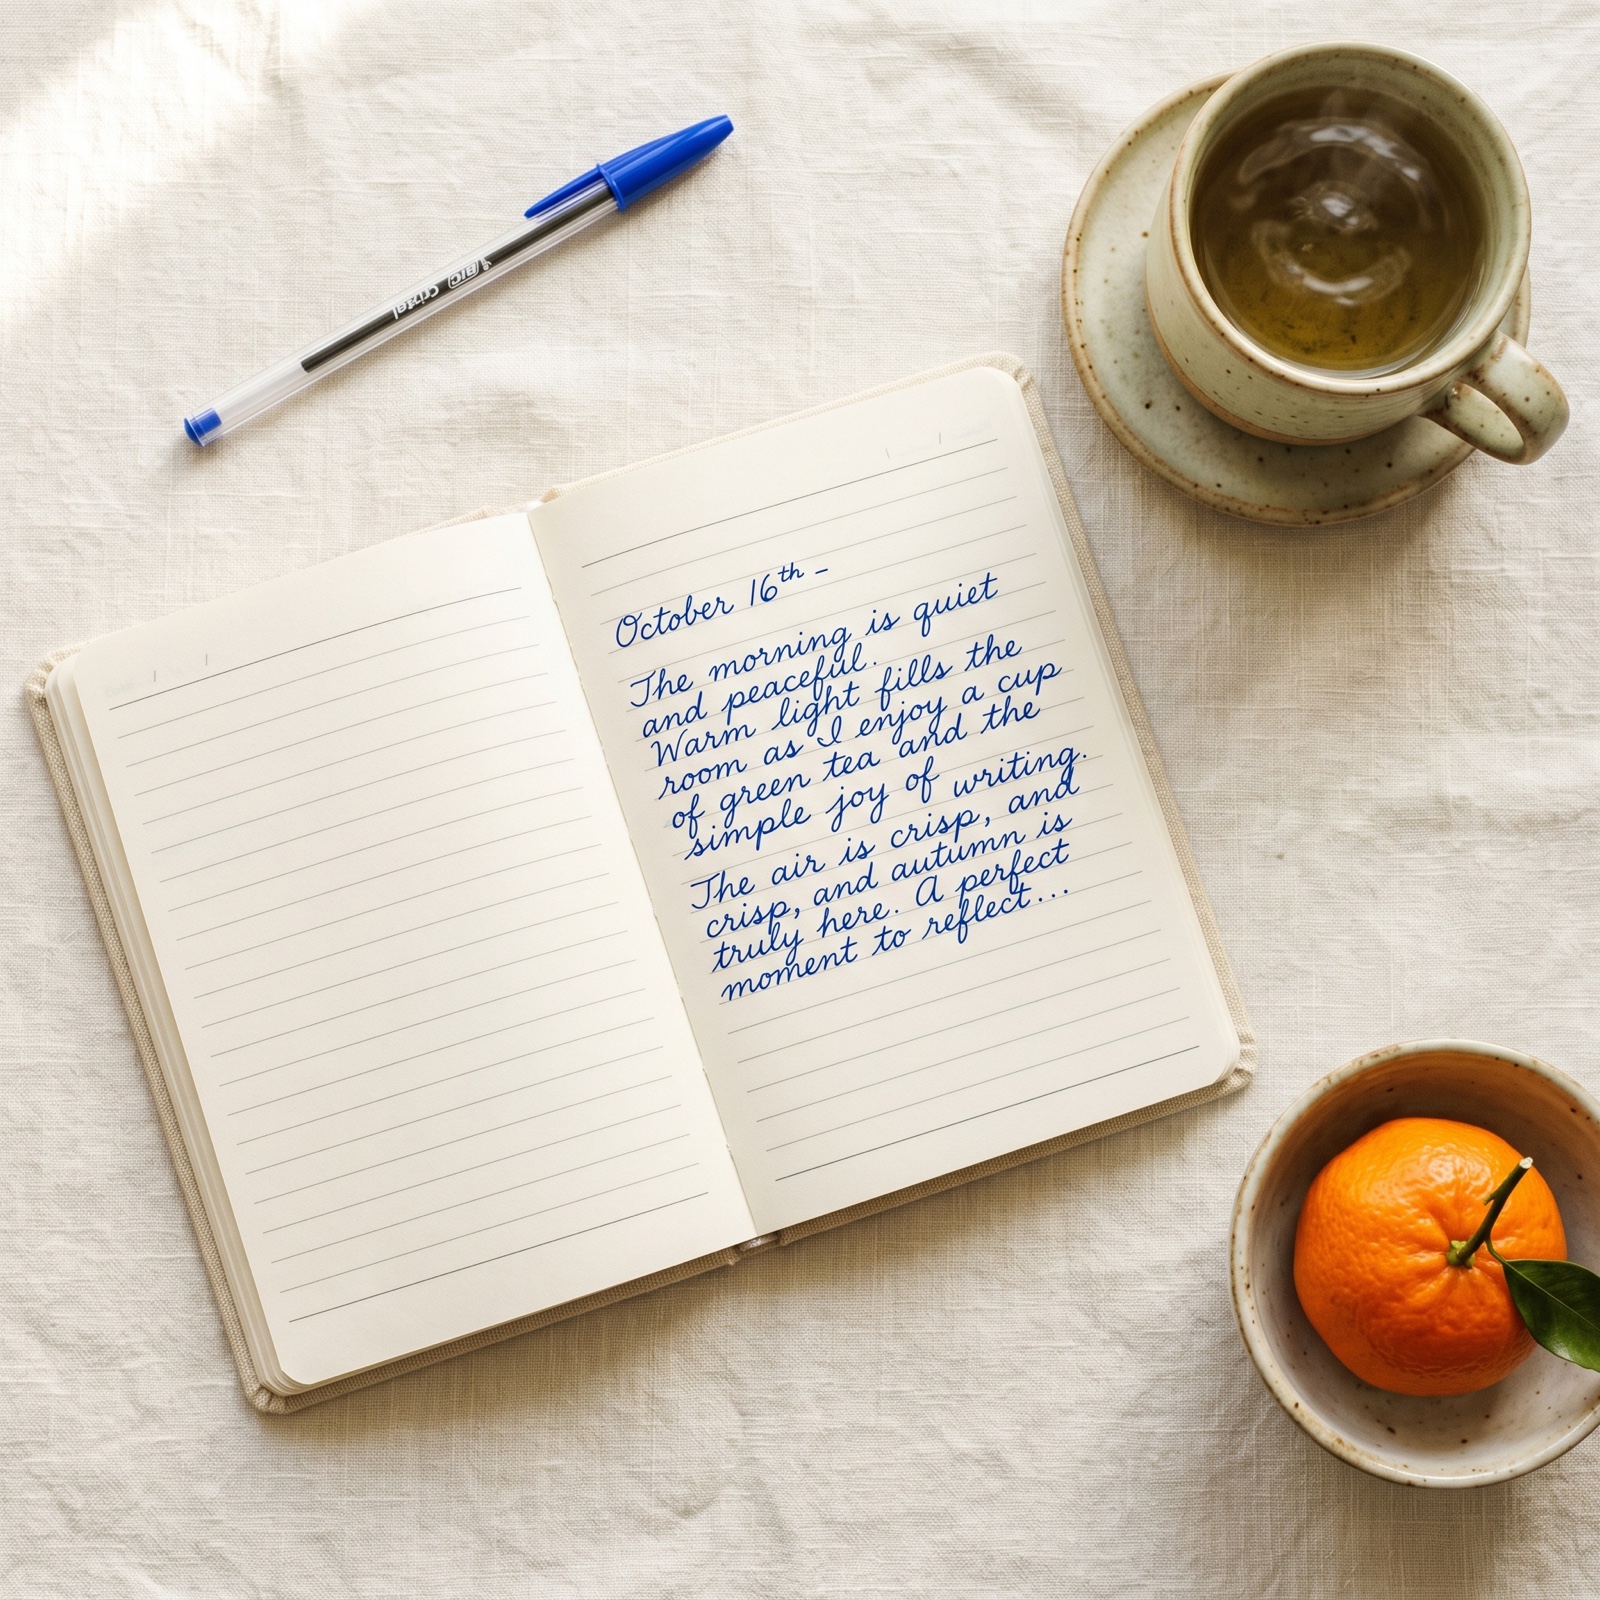 BIC Cristal
October 16th –
The morning is quiet
and peaceful.
Warm light fills the
room as I enjoy a cup
of green tea and the
simple joy of writing.
The air is crisp, and
crisp, and autumn is
truly here. A perfect
moment to reflect...